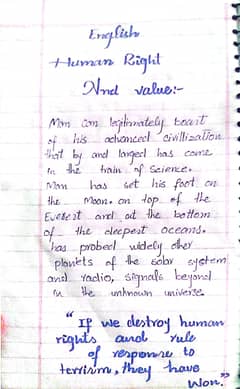 English
Human Right
And value:-
Man can legitimately boast
of his advanced civillization
that by and larged has come
in the train of science.
Man has set his foot on
the Moon. on top of the
Everest and at the bottom
of the deepest oceans.
has probed widely other
planets of the solar system
and radio, signals beyond
in the unknown universe.
"If we destroy human
rights and rule
of response to
terrism, they have
won."